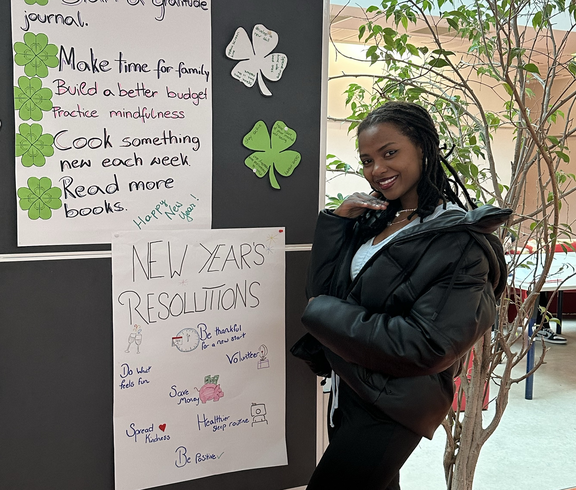 Start a gratitude
journal.
Make time for family
Build a better budget
Practice mindfulness
Cook something
new each week
Read more
books.
Happy New
Year!
NEW YEAR'S
RESOLUTIONS
Be thankful
for a new start
Do what
feels fun
Volunteer
Save
Money
Spread
Kindness
Healthier
Sleep routine
Be Positive